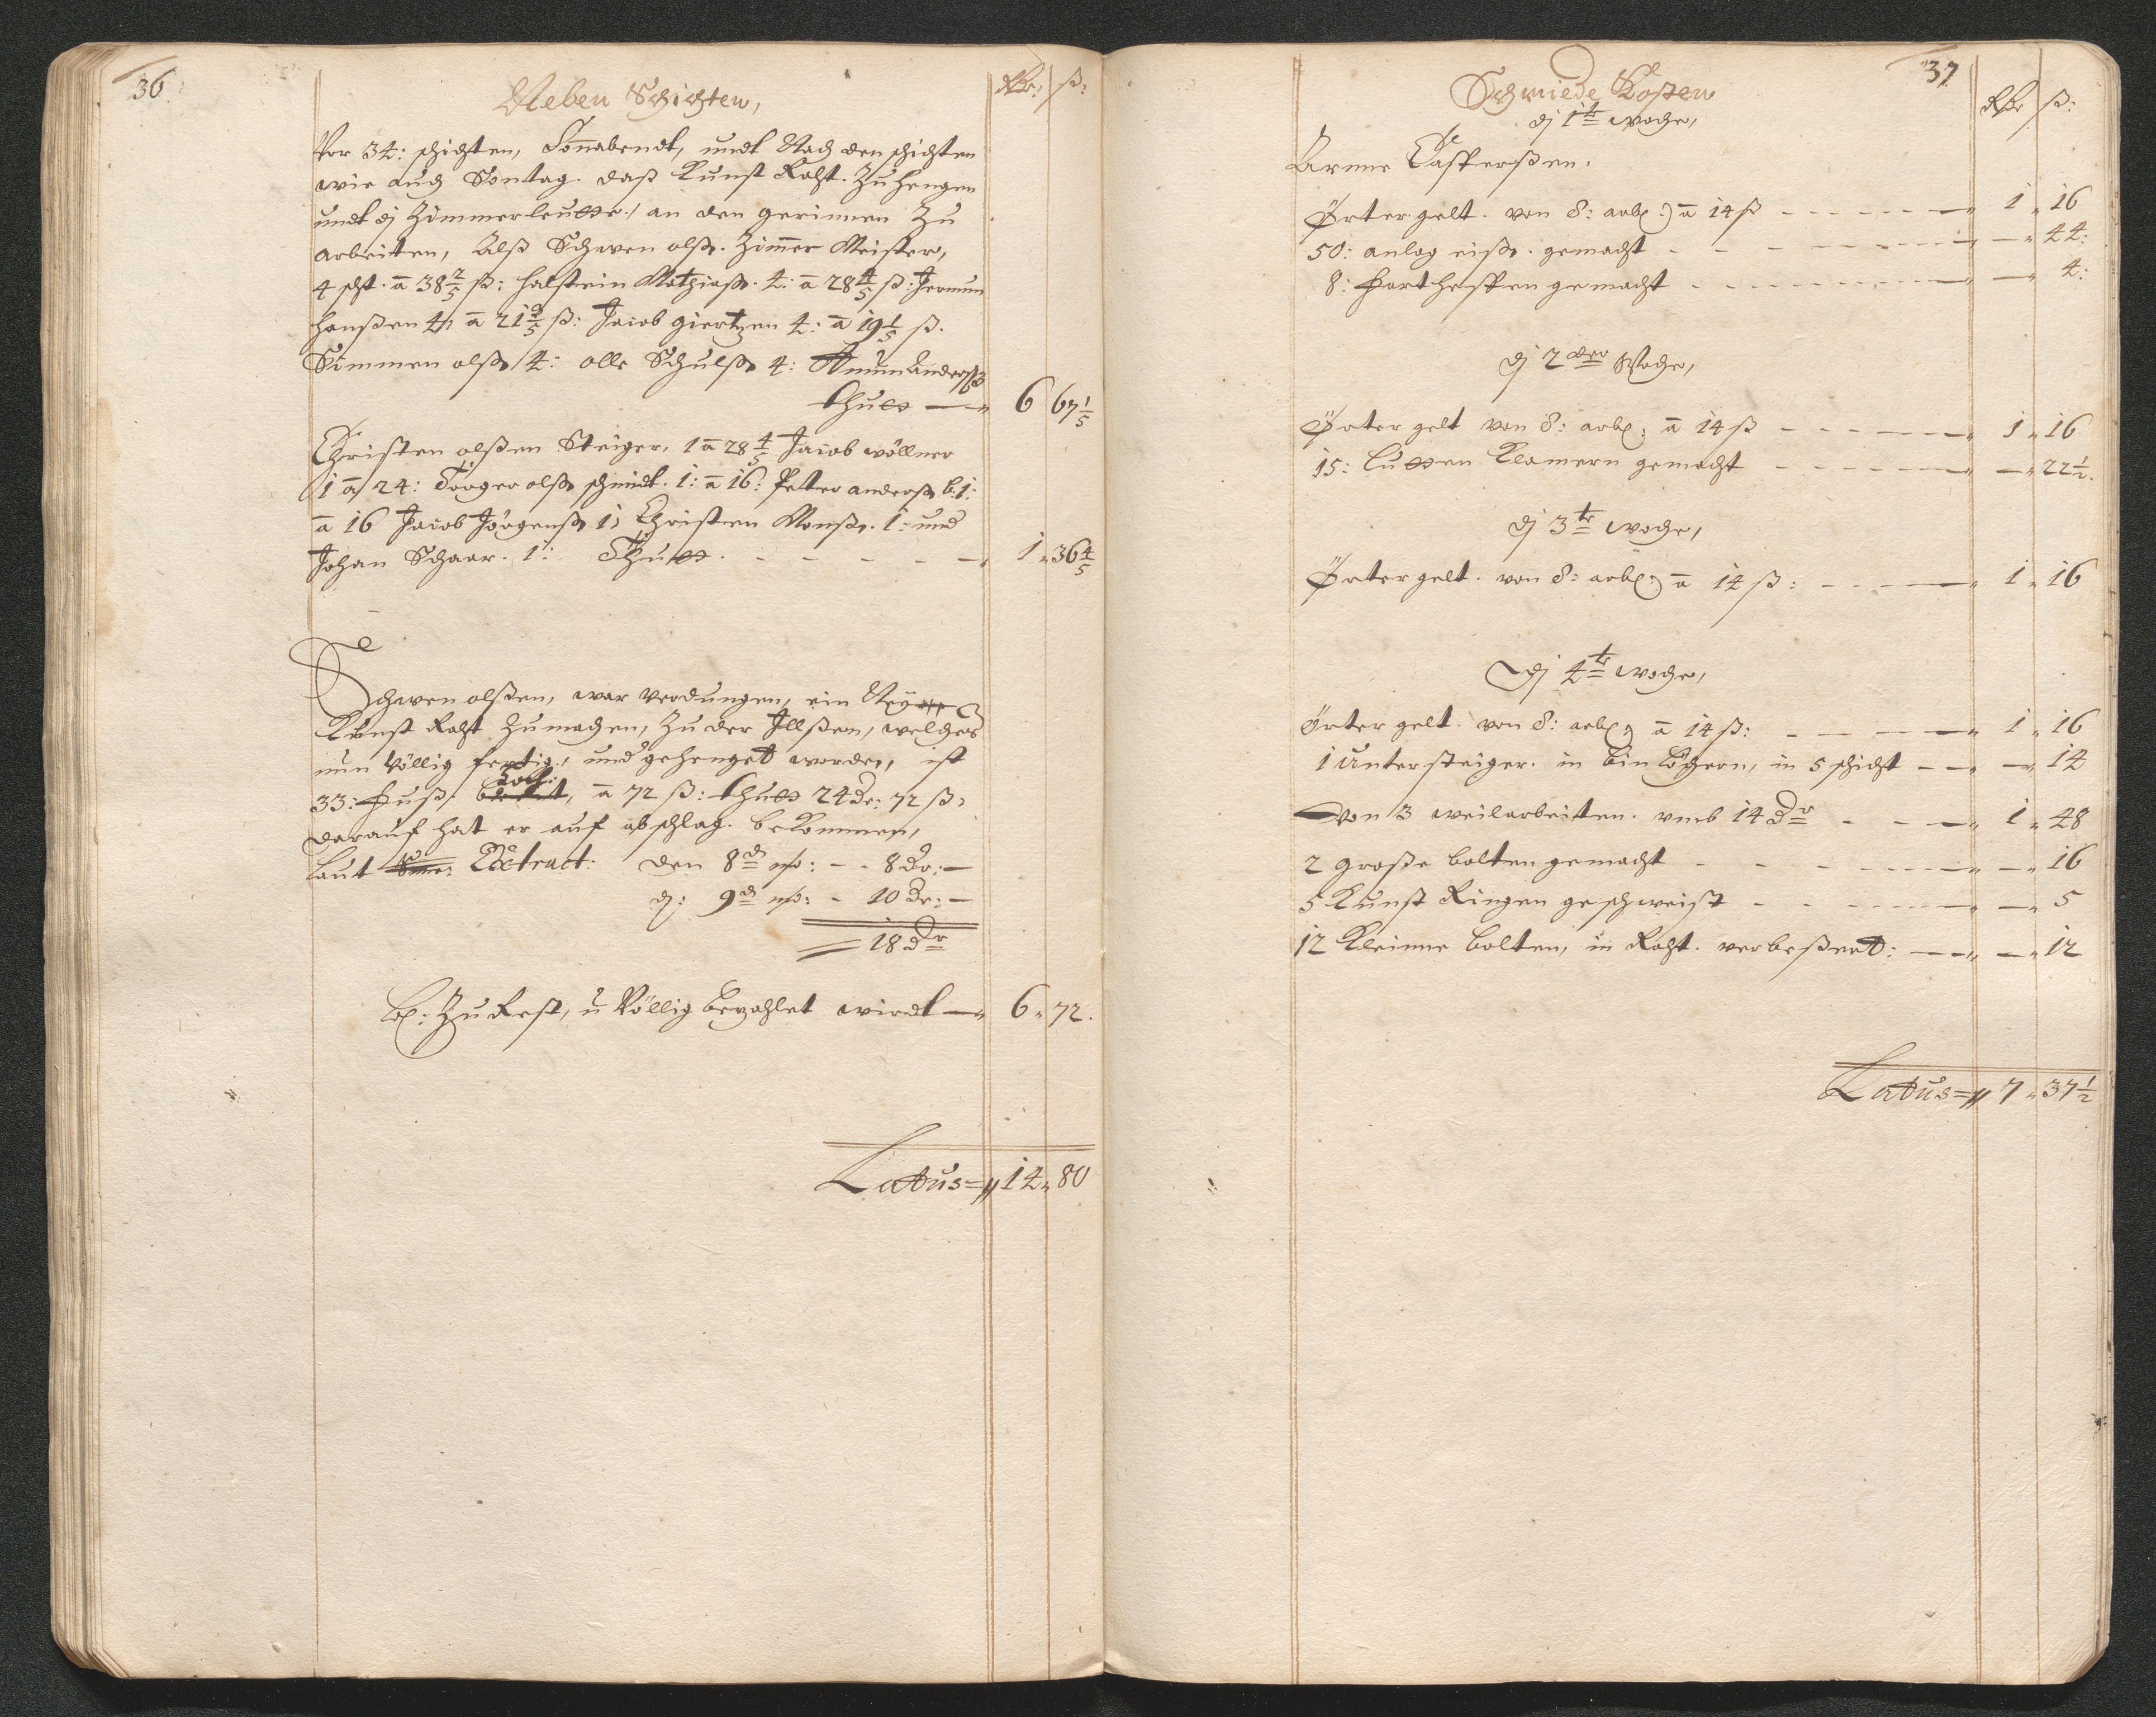 36.
Neben Schichten,
Rdr: ß:
Vor 34: schichten, Sonnabendt, undt Nach den schichten
wie auch Sontag. daß Kunst Raht. Zu hengen
undt dj Zimmerleutte / an den gerinnen Zu
arbeiten, Alß Schwen olß. Zimmer Meister,
4 scht. a 38 2/5 ß: Halstein Mathiaß. 4: a 28 4/5 ß:
Hanßen 4: a 21 3/5 ß: Jacob giertzen 4: a 19 1/5 ß.
Simmen olß 4: olle Schulß 4: Amun Anderß
thutt — 6 67 1/5
Christen olßen Steiger. 1 a 28 4/5 Jacob wöllner
1 a 24: olß schmidt. 1: a 16: Peter anderß 1:
a 16 Jacob Jörgenß 1: Christen Monß. 1: und
Johan Schaar. 1: Thutt. - - - - — 1 " 36 4/5
Schwen olßen, war verdungen, ein Neü
Kunst Raht Zumachen, Zu der Illßen, welches
nun Völlig fertig, und gehenget worden, ist
33: Fuß: hoch: a 72 ß: thutt 24 Dr: 72 ß:
darauf hat er auf abschlag. bekommen,
laut Extract: den 8 d: - - 8 Dr: —
dj: 9 d: - 10 Dr: —
18 Dr
Zu Rest, u Völlig bezahlet wirdt — 6 " 72.
Latus = " 14 " 80
37
Schmiede Kosten
Rdr ß:
dj 1te woche,
Arnne Casperßen.
Örtergelt. von 8: arb: a 14 ß - - - — 1 " 16
50: anlog eiß. gemacht - - - — " 44:
8: gemacht - - - — " 4:
dj 2der Woche,
Örtergelt von 8: arb: a 14 ß - - - — 1 " 16
15: Lutten Klamern gemacht - - - — " 22 1/2.
dj 3te woche,
Örtergelt. von 8: arb: a 14 ß: - - - — 1 " 16
Dj 4te woche,
Örtergelt. von 8: arb: a 14 ß: - - - — 1 " 16
1 Untersteiger. in in 5 schicht - - — " 14
Von 3 weilarbeitten. umb 14 Dr - - — 1 " 48
2 große bolten gemacht - - - — " 16
5 Kunst Ringen geschweist - - - — " 5
12 Kleinne bolten, in Raht. verbeßert: — — " 12
Latus = " 7 " 37 1/2